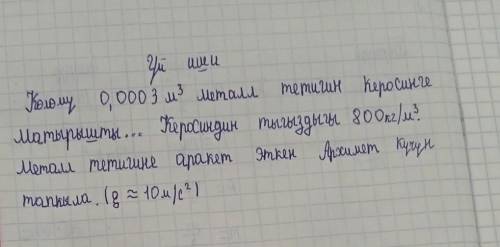 Үй иши
Көлөмү 0,0003 м³ металл тетигин керосинге
матырышты... Керосиндин тыгыздыгы 800кг/м³.
Металл тетигине аракет эткен Архимед күчүн
тапкыла. (g ≈ 10м/с²)